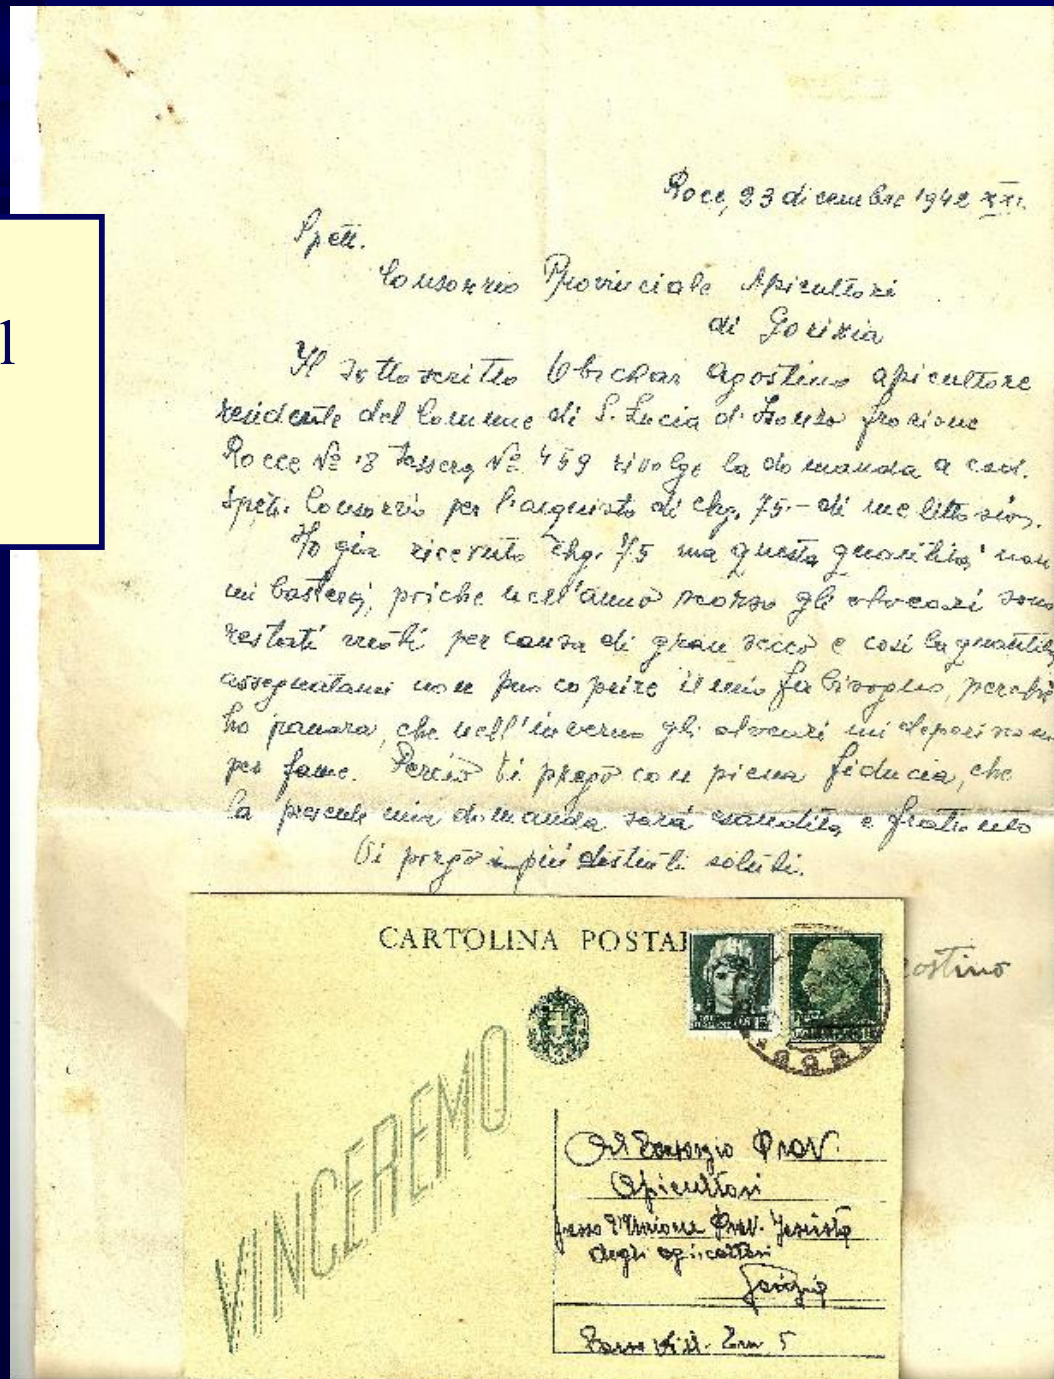 1
Roce, 23 dicembre 1942 XXI.
Spett.
Consorzio Provinciale Apicultori
di Gorizia
Il sottoscritto Agostino apicultore
residente del Comune di S. Lucia d'Isonzo frazione
Rocce № 18 Tessera № 459 rivolge la domanda a cod.
Spett. Consorzio per l'acquisto di chg. 75.- di
Ho già ricevuto chg. 75 ma questa quantità non
mi basterà, poiche nell'anno scorso gli alveari sono
restati vuoti per causa di gran secco e così la quantità
assegnatami non può coprire il mio fabisogno, perchè
ho panara, che nell'inverno gli alveari mi deperiscono
per fame. Perciò Vi prego con piena fiducia, che
la presente mia domanda sarà esaudita e frattento
Vi porgo i più distinti saluti.
ostino
CARTOLINA POSTAL
VINCEREMO
Al Consorzio Prov.
Apicultori
presso l'Unione Prov.
degli agricoltori
Gorizia
Corso 5